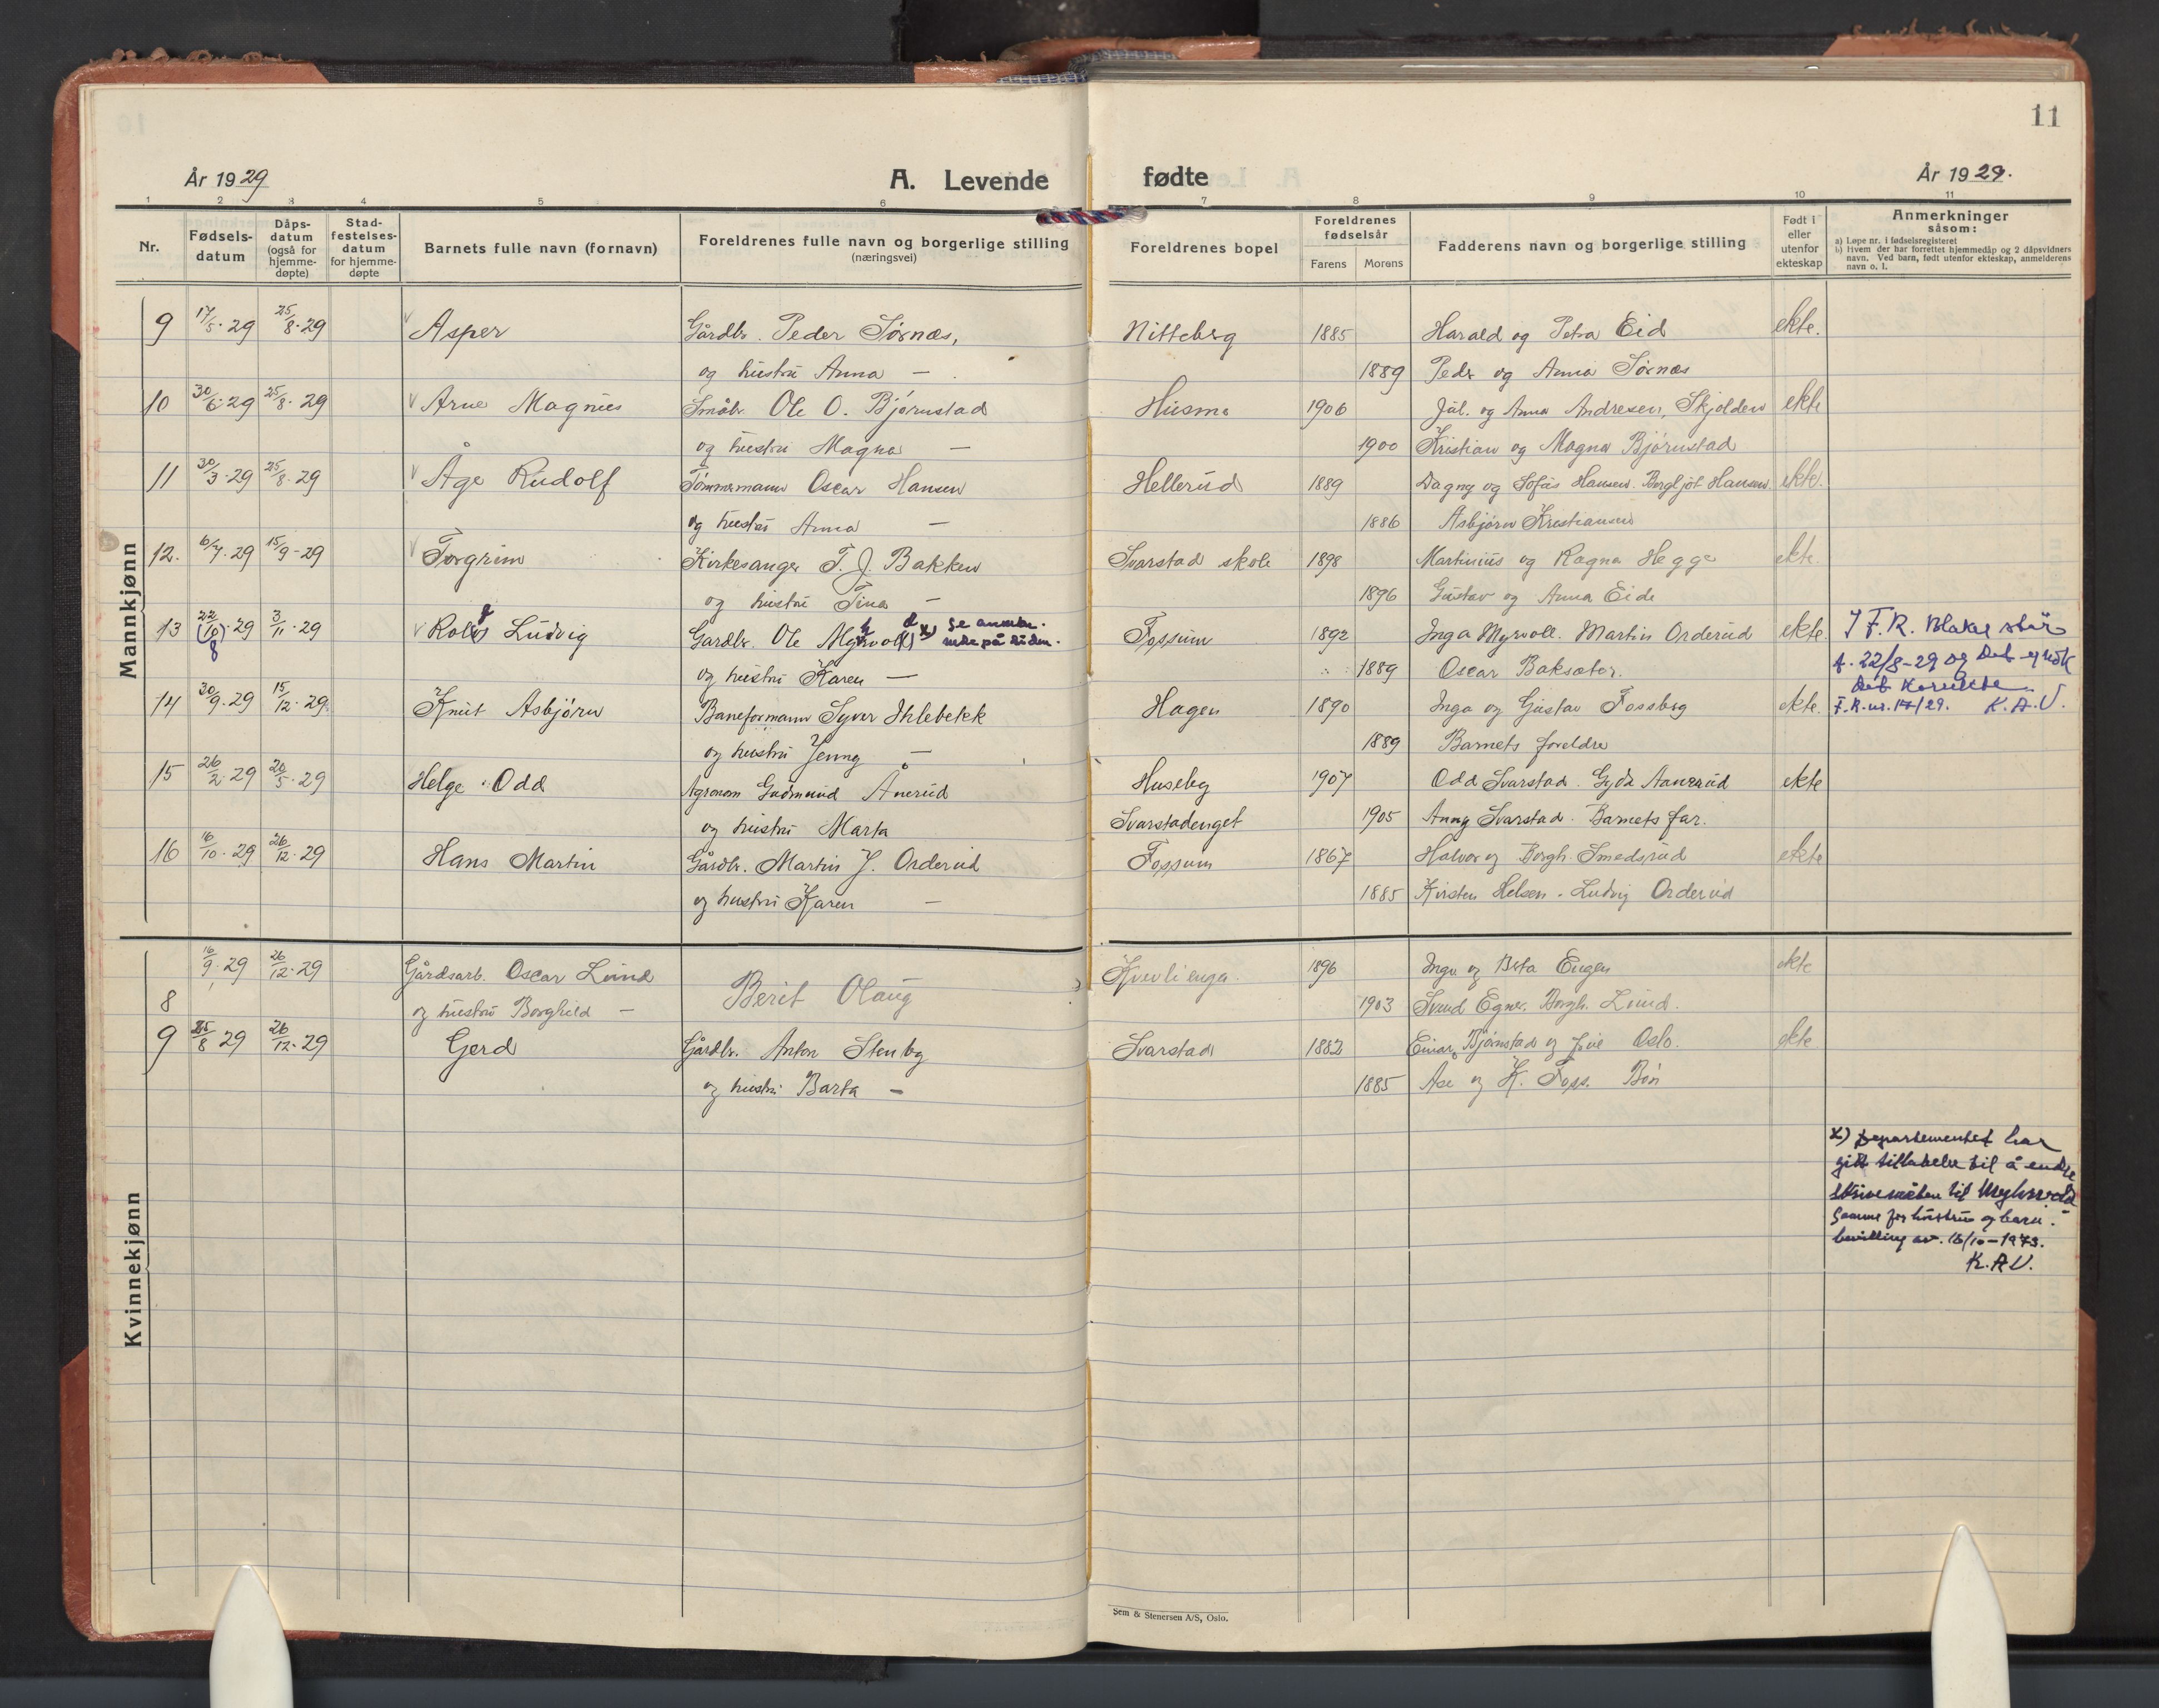 11
År 1929
A. Levende fødte
År 1929.
1 2 3 4 5 6 7 8 9 10 11
Nr.
Fødsels-
datum
Dåps-
datum
(også for
hjemme-
døpte)
Stad-
festelses-
datum
for hjemme-
døpte
Barnets fulle navn (fornavn)
Foreldrenes fulle navn og borgerlige stilling
(næringsvei)
Foreldrenes bopel
Foreldrenes
fødselsår
Farens Morens
Fadderens navn og borgerlige stilling
Født i
eller
utenfor
ekteskap
Anmerkninger
såsom:
a) Løpe nr. i fødselsregisteret
b) Hvem der har forrettet hjemmedåp og 2 dåpsvidners
navn. Ved barn, født utenfor ekteskap, anmelderens
navn o. l.
Mannkjønn
9 17/5.29 25/8.29 Asper Gårdbr. Peder Sørnæs, Nitteberg 1885 Harald og Petra Eid ekte.
og hustru Anna — 1889 Peder og Anna Sørnæs
10 30/6.29 25/8.29 Arne Magnus Småbr. Ole O. Bjørnstad Husmo 1906 Jul. og Anna Andresen, Skjolden ekte
og hustru Magna — 1900 Kristian og Magna Bjørnstad
11 30/3.29 25/8.29 Åge Rudolf Tømmermann Oscar Hansen Hellerud 1889 Dagny og Sofus Hansen. Bergljot Hansen. ekte.
og hustru Anna — 1886 Asbjørn Kristiansen
12. 6/7.29 15/9-29 Torgrim Kirkesanger T. J. Bakken Svarstad skole 1898 Martinius og Ragna Hegge ekte.
og hustru Tina — 1896 Gustav og Anna Eide
13 22/(10).29 8 3/11.29 Rolf Ludvig Gardbr. Ole Myhrvold x) Se anmerkn. nede på siden. Fossum 1892 Inga Myrvoll. Martin Orderud ekte. I F.R. Blaker står
og hustru Karen — 1889 Oscar Baksæter. f. 22/8-29 og det
det korrekte
14 30/9.29 15/12.29. Knut Asbjørn Baneformann Syver Ihlebekk Hagen 1890 Inga og Gustav Fossberg ekte. F.R. nr. 17/29. K.A.V.
og hustru Jenny — 1889 Barnets foreldre
15 26/2.29 20/5.29 Helge Odd Agronom Gudmund Ånerud Huseby 1907 Odd Svarstad. Gyda Aanerud ekte
og hustru Marta Svarstadenget 1905 Anny Svarstad. Barnets far.
16 16/10.29 26/12.29 Hans Martin Gårdbr. Martin J. Orderud Fossum 1867 Halvor og Borgh. Smedsrud ekte
og hustru Karen — 1885 Kirsten Helsen. Ludvig Orderud
Kvinnekjønn
8 16/9.29 26/12.29 Gårdsarb. Oscar Lund Berit Olaug 1896 Inga og Berta Engen ekte
og hustru Borghild — 1903 Svend Egner. Borgh. Lund.
9 25/8 29 26/12.29 Gerd Gårdbr. Anton Stenby Svarstad 1882 Einar Bjørnstad og frue Oslo. ekte
og hustru Barta — 1885 Ase og K. Foss. Bøn
x) Departementet har
gitt tillatelse til å endre
skrivemåten til Myhrvold
Samme for hustru og barn.
bevilling av. 16/10-1973.
K.A.V.
Sem & Stenersen A/S, Oslo.